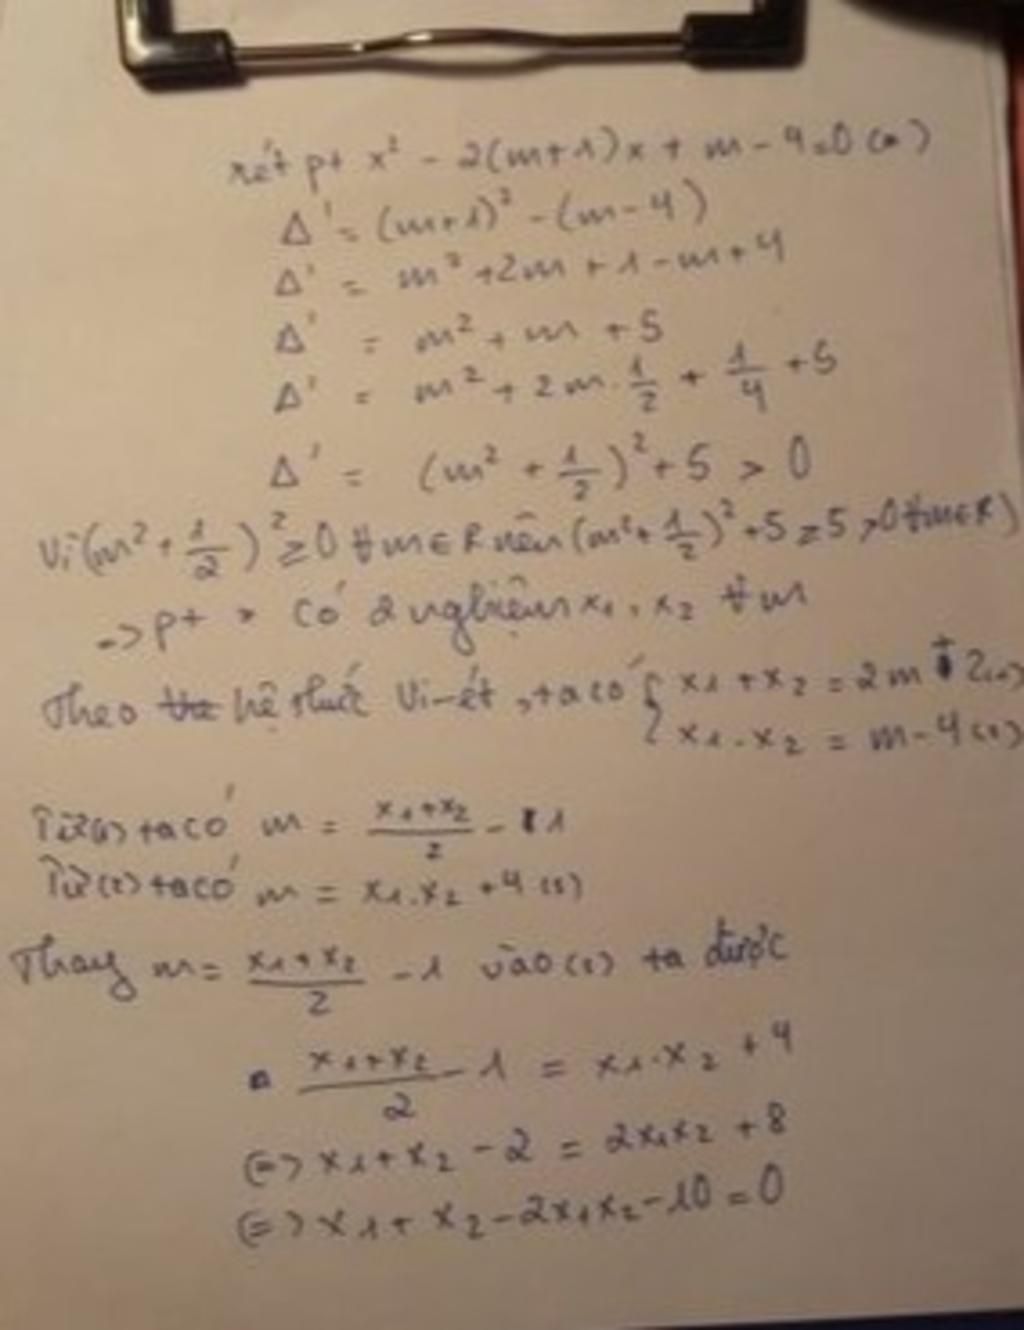 xét pt x² - 2(m+1)x + m - 4 = 0 (*)
Δ' = (m+1)² - (m-4)
Δ' = m² + 2m + 1 - m + 4
Δ' = m² + m + 5
Δ' = m² + 2m . 1/2 + 1/4 + 5
Δ' = (m² + 1/2)² + 5 > 0
Vì (m² + 1/2)² ≥ 0 ∀m∈R nên (m² + 1/2)² + 5 ≥ 5 > 0 ∀m∈R)
=> pt * có 2 nghiệm x1, x2 ∀m
Theo hệ thức Vi-ét, ta có { x1 + x2 = 2m + 2 (1)
x1 . x2 = m - 4 (2)
Từ (1) ta có m = (x1+x2)/2 - 1
Từ (2) ta có m = x1.x2 + 4 (3)
Thay m = (x1+x2)/2 - 1 vào (3) ta được
(x1+x2)/2 - 1 = x1.x2 + 4
(=) x1 + x2 - 2 = 2x1x2 + 8
(=) x1 + x2 - 2x1x2 - 10 = 0